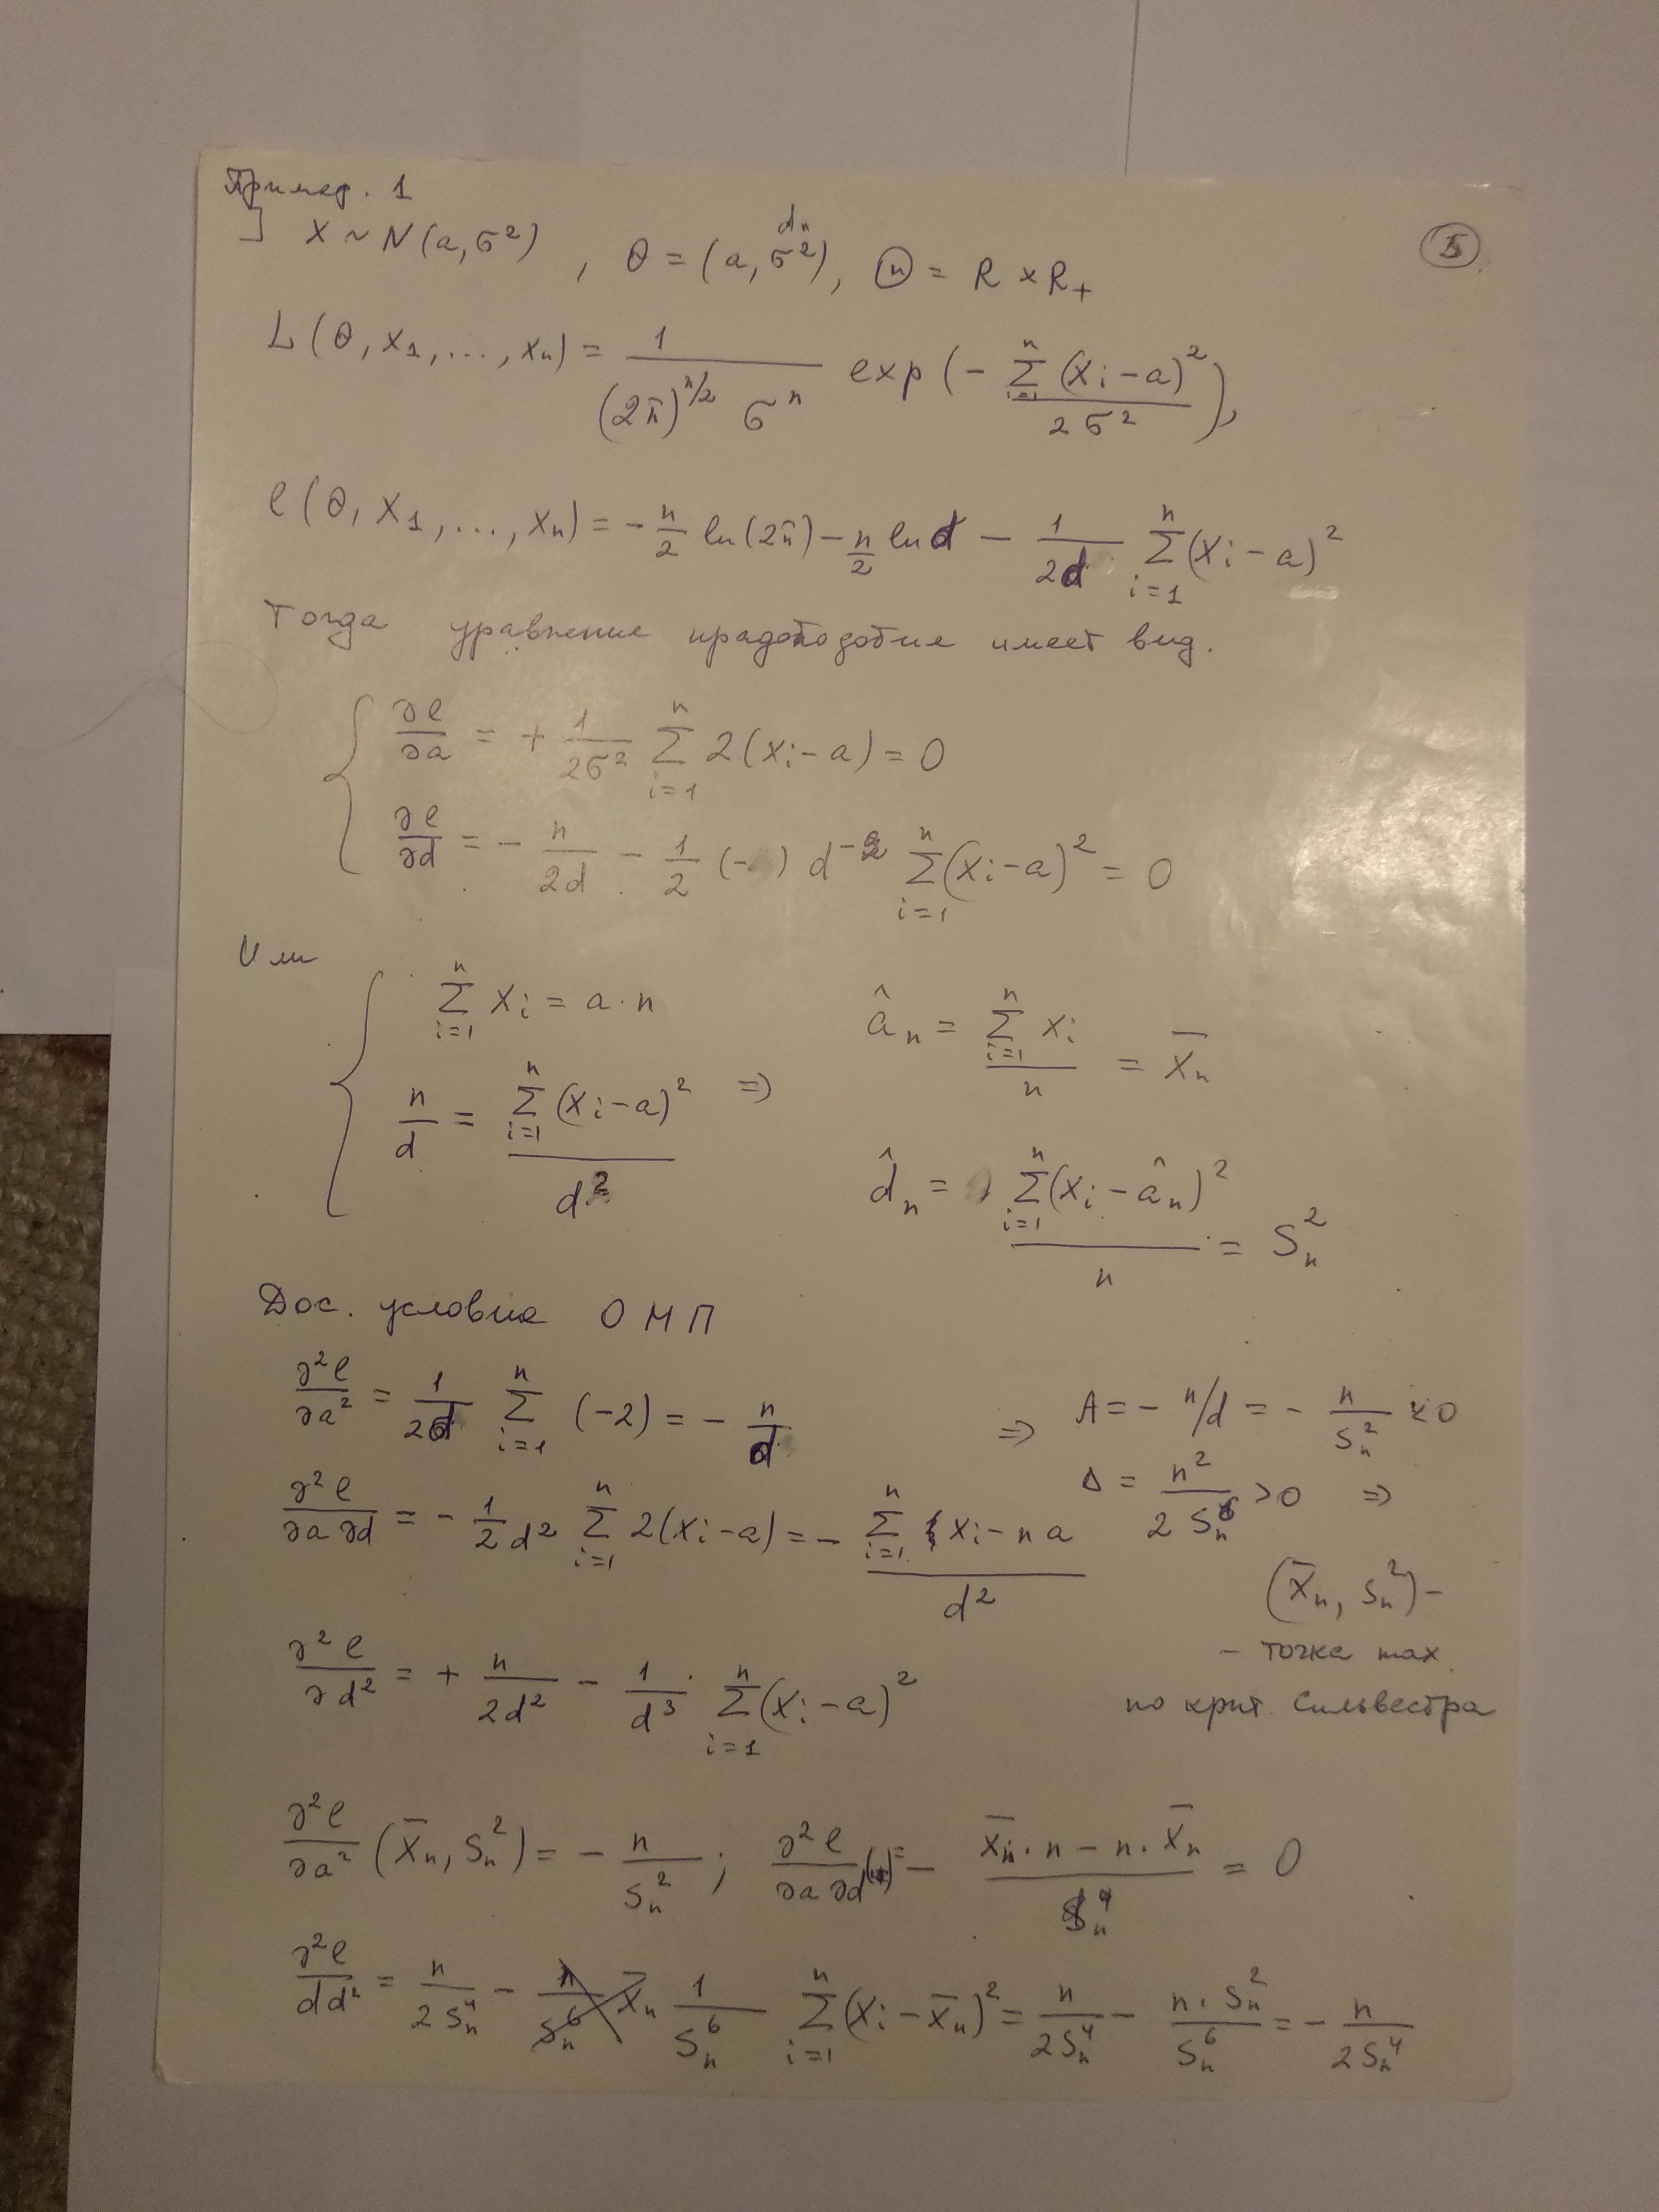 Пример. 1
] X ~ N(a, σ²), θ = (a, σ²), Θ = R × R₊
d "
5
L(θ, x₁, ..., xₙ) = 1 / ((2π)^(n/2) σⁿ) exp(- Σ_{i=1}^{n} (xᵢ - a)² / 2σ²),
l(θ, x₁, ..., xₙ) = - n/2 ln(2π) - n/2 ln d - 1/(2d) Σ_{i=1}^{n} (xᵢ - a)²
Тогда уравнение прадоподобие имеет вид.
∂l/∂a = + 1/(2σ²) Σ_{i=1}^{n} 2(xᵢ - a) = 0
∂l/∂d = - n/(2d) - 1/2 (-) d⁻² Σ_{i=1}^{n} (xᵢ - a)² = 0
Или
Σ_{i=1}^{n} xᵢ = a · n
n/d = Σ_{i=1}^{n} (xᵢ - a)² / d² =>
âₙ = Σ_{i=1}^{n} xᵢ / n = x̄ₙ
d̂ₙ = Σ_{i=1}^{n} (xᵢ - âₙ)² / n = Sₙ²
Дос. условия ОМП
∂²l/∂a² = 1/(2d) Σ_{i=1}^{n} (-2) = - n/d
=> A = - n/d = - n/Sₙ² < 0
∂²l/∂a∂d = - 1/2 d² Σ_{i=1}^{n} 2(xᵢ - a) = - (Σ_{i=1}^{n} xᵢ - na) / d²
Δ = n² / (2Sₙ⁶) > 0 =>
(x̄ₙ, Sₙ²) -
- точка max
по крит. Сильвестра
∂²l/∂d² = + n/(2d²) - 1/d³ · Σ_{i=1}^{n} (xᵢ - a)²
∂²l/∂a² (x̄ₙ, Sₙ²) = - n/Sₙ² ; ∂²l/∂a∂d () = - (x̄ₙ · n - n · x̄ₙ) / Sₙ⁴ = 0
∂²l/dd² = n/(2Sₙ⁴) - 1/Sₙ⁶ Σ_{i=1}^{n} (xᵢ - x̄ₙ)² = n/(2Sₙ⁴) - n · Sₙ² / Sₙ⁶ = - n/(2Sₙ⁴)